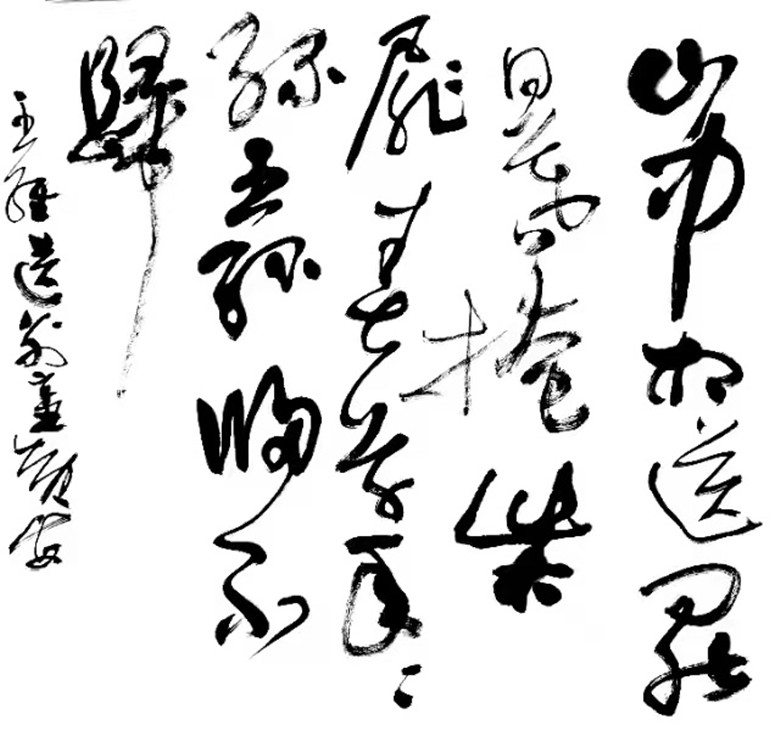 山中相送罷
日暮掩柴
扉春草年々
綠王孫歸不
歸
王維送別